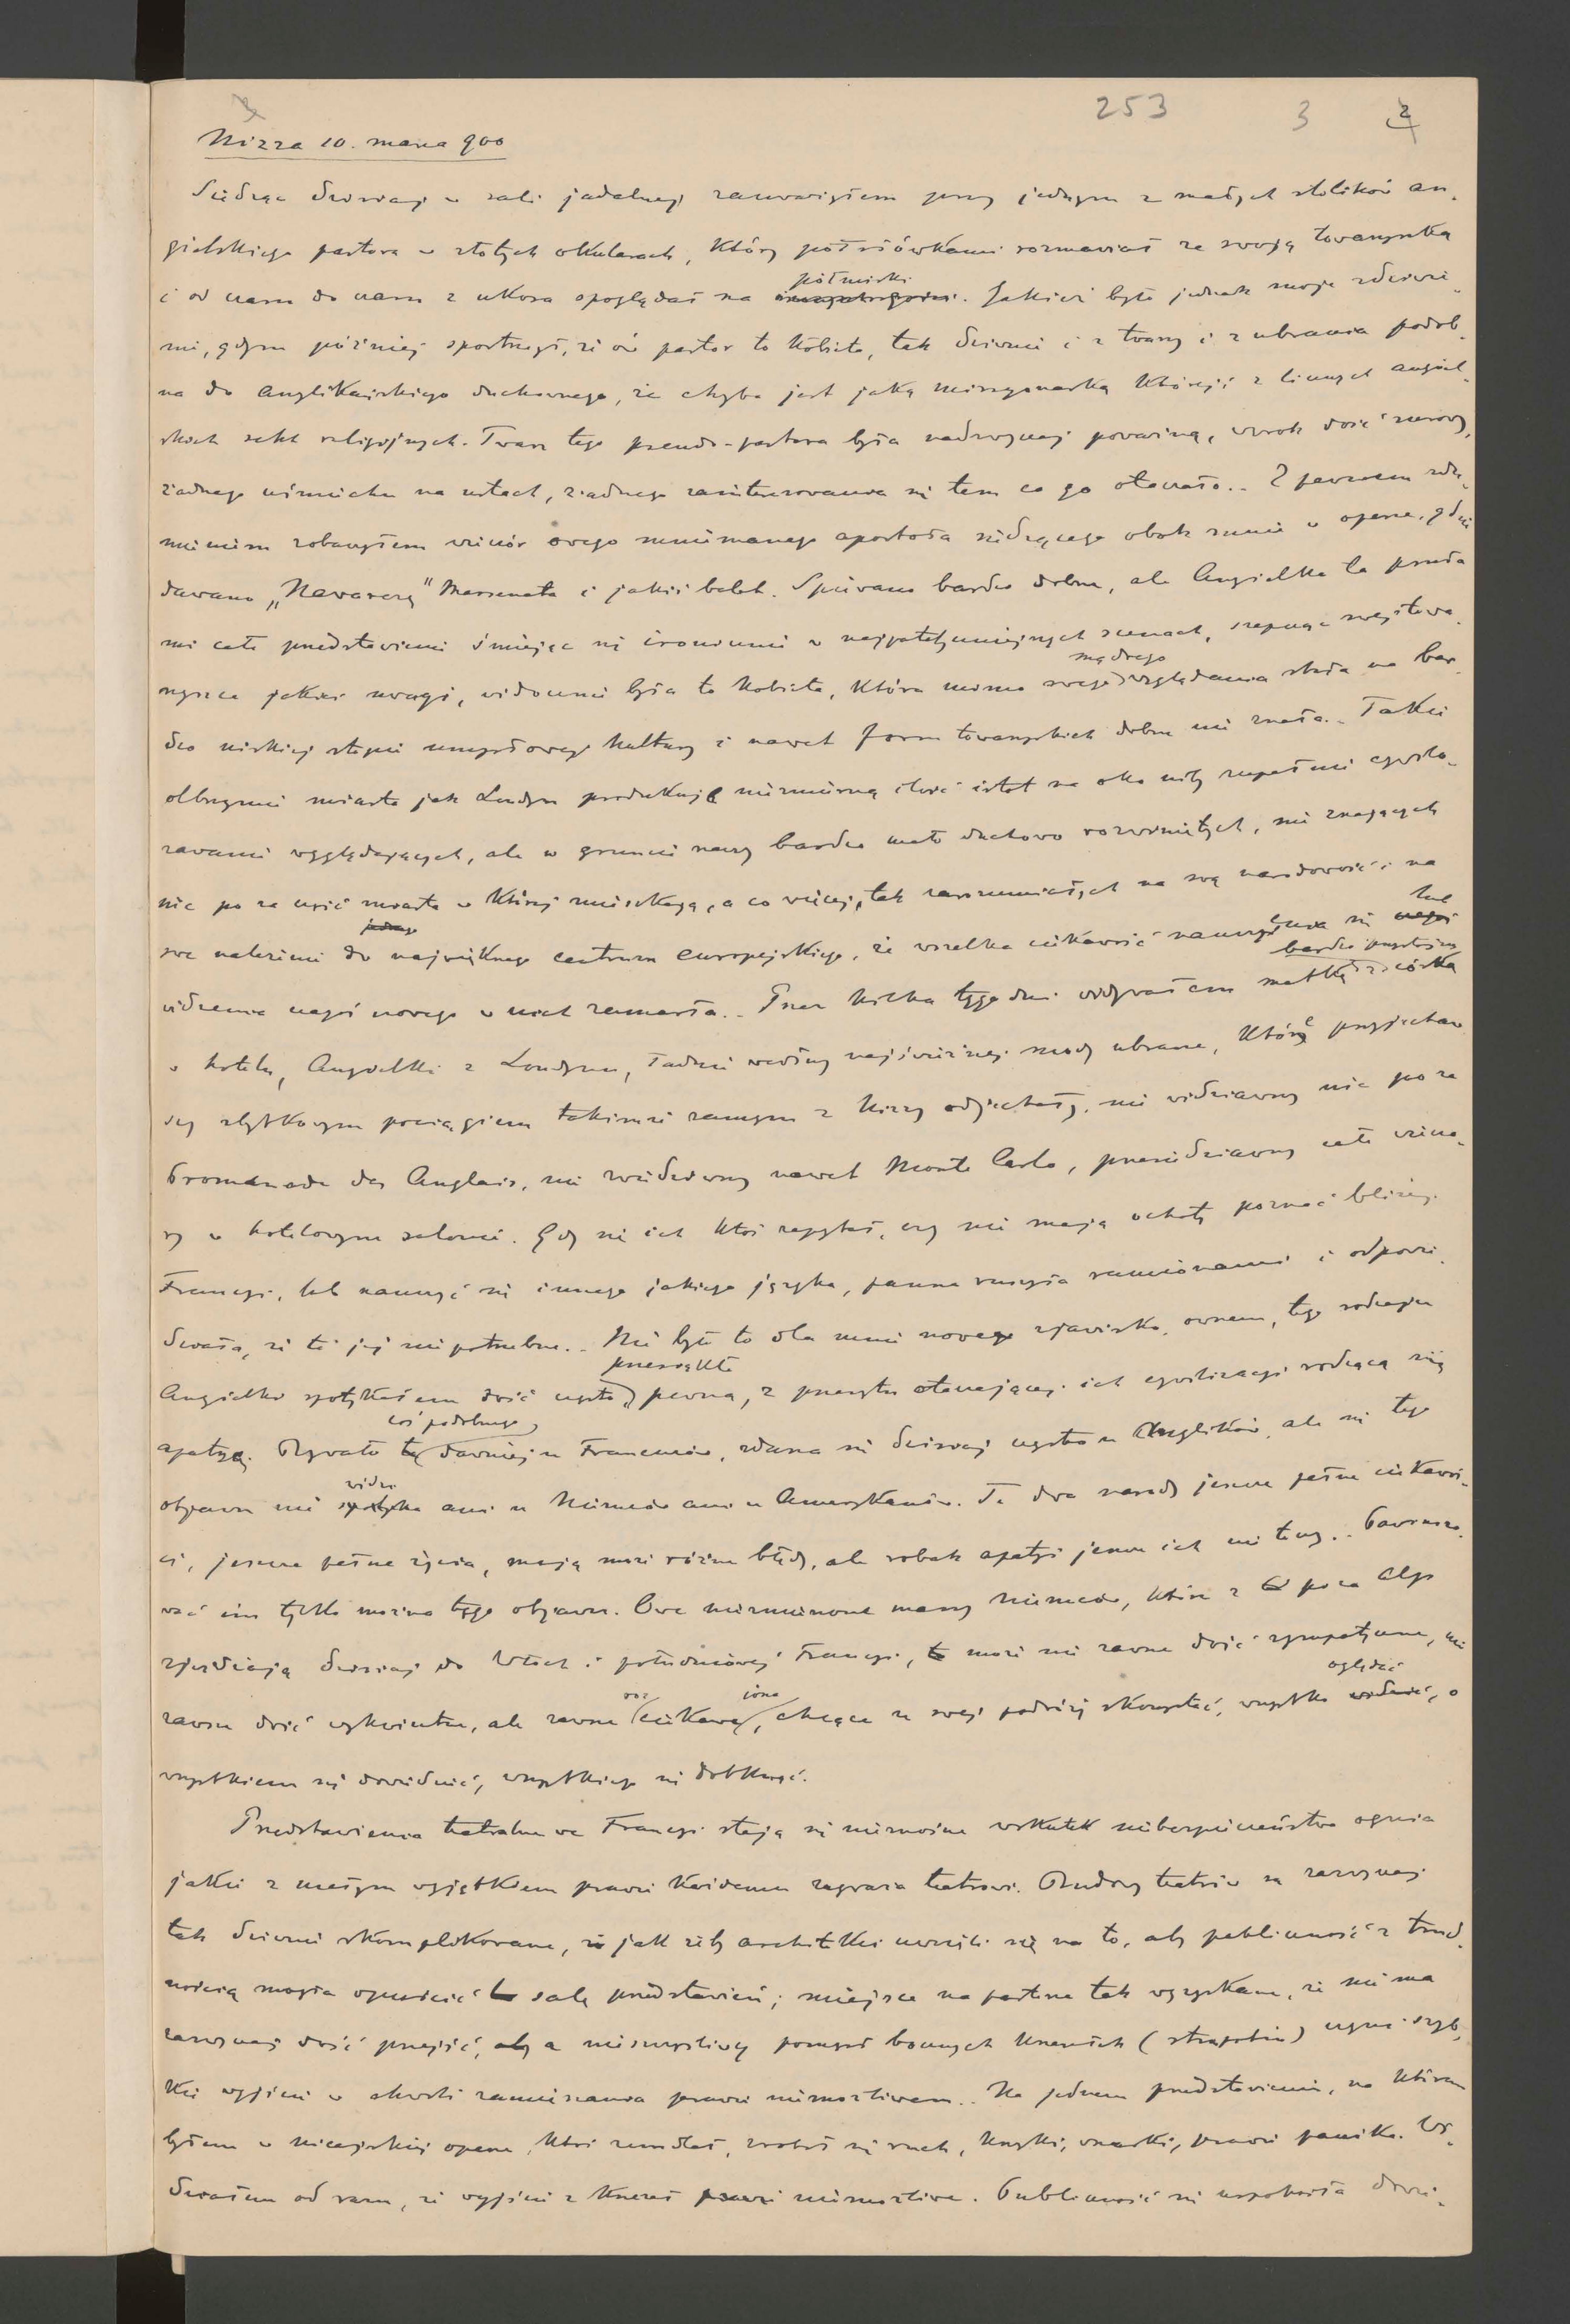 253 3 2
Nizza 10. marca 900
Siedząc dzisiaj w sali jadalnej zauważyłem przy jednym z małych stolików an-
gielskiego pastora w złotych okularach, który półsłówkami rozmawiał ze swoją towarzyszką
półmiski
i od czasu do czasu z ukosa spoglądał na . Jakież było jednak moje zdziwie-
nie, gdym później spostrzegł, że ów pastor to kobieta, tak dziwnie i z twarzy i z ubrania podob-
na do anglikańskiego duchownego, że chyba jest jaką missyonarką którejś z licznych angiel-
skich sekt religijnych. Twarz tego pseudo-pastora była nadzwyczaj poważną, wzrok dość surowy,
żadnego uśmiechu na ustach, żadnego zainteresowania się tem co go otaczało.. Z pewnem zdu-
mieniem zobaczyłem wieczór owego mniemanego apostoła siedzącego obok mnie w operze, gdzie
dawano „Navarezę" Masseneta i jakiś balet. Śpiewano bardzo dobrze, ale Angielka ta psuła
mi całe przedstawienie śmiejąc się ironicznie w najpatetyczniejszych scenach, szepcąc swej towa-
mądrego
rzyszce jakieś uwagi, widocznie była to kobieta, która mimo swego wyglądania stała na bar-
dzo niskiej stopni umysłowej kultury i nawet form towarzyskich dobrze nie znała.. Takie
olbrzymie miasta jak Londyn produkują niezmierną ilość istot na oko niby zupełnie cywili-
zowanie wyglądających, ale w gruncie rzeczy bardzo mało duchowo rozwiniętych, nie znających
nic po za częś miasta w której mieszkają, a co więcej, tak zarozumiałych na swą narodowość i na
jednego lub
swe należenie do największego centrum europejskiego, że wszelka ciekawość nauczenia się czegoś
bardzo przystojną
widzenia czegoś nowego w nich zamarła.. Przez kilka tygodni widywałem matkę z córką
w hotelu, Angielki z Londynu, ładnie według najświeższej mody ubrane, które przyjechaw-
szy zbytkowym pociągiem takimże samym z Nizzy odjechały, nie widziawszy nic po za
Promenade des Anglais, nie zwiedziwszy nawet Monte Carlo, przesiedziawszy całe wieczo-
ry w hotelowym salonie. Gdy się ich ktoś zapytał, czy nie mają ochoty poznać bliżej
Francyi, lub nauczyć się innego jakiego języka, panna ruszyła ramionami i odpowie-
działa, że to jej niepotrzebne.. Nie było to dla mnie nowe zjawisko, owszem, tego rodzaju
przesiąkłe
Angielki spotykałem dość często pewną, z przesytu otaczającej ich cywilizacyi rodzącą się
coś podobnego
apatyą. Bywało to dawniej u Francuzów, zdarza się dzisiaj często u Anglików, ale się tego
widzi
objawu nie spotyka ani u Niemców ani u Amerykanów. Te dwa narody jeszcze pełne ciekawoś-
ci, jeszcze pełne życia, mają może różne błędy, ale robak apatyi jeszcze ich nie toczy.. Powinszo-
wać im tylko można tego objawu. Owe niezmierzone massy Niemców, które z poza Alp
zjeżdżają dzisiaj do Włoch i południowej Francyi, może nie zawsze dość sympatyczne, nie
roz iona oglądać
zawsze dość wykwintne, ale zawsze ciekawe, chcące ze swej podróży skorzystać, wszystko widzieć, o
wszystkiem się dowiedzieć, wszystkiego się dotknąć.
Przedstawienia teatralne we Francyi stają się nieznośne wskutek niebezpieczeństwa ognia
jakie z małym wyjątkiem prawie każdemu zagraża teatrowi. Budowy teatrów są zazwyczaj
tak dziwnie skomplikowane, jak żeby architekci uwzięli się na to, aby publiczność z trud-
nością mogła opuścić salę przedstawień; miejsce na parterze tak wyzyskane, że nie ma
zazwyczaj dość przejść, a nieszczęśliwy pomysł bocznych krzesełek (strapotin) czyni szyb-
kie wyjście w chwili zamieszania prawie niemożliwem.. Na jednem przedstawieniu, na którem
byłem w nicejskiej operze, ktoś zemdlał, zrobił się ruch, krzyki, wrzaski, prawie panika. Wi-
działem od razu, że wyjście z krzeseł prawie niemożliwe. Publiczność się uspokoiła dowie-